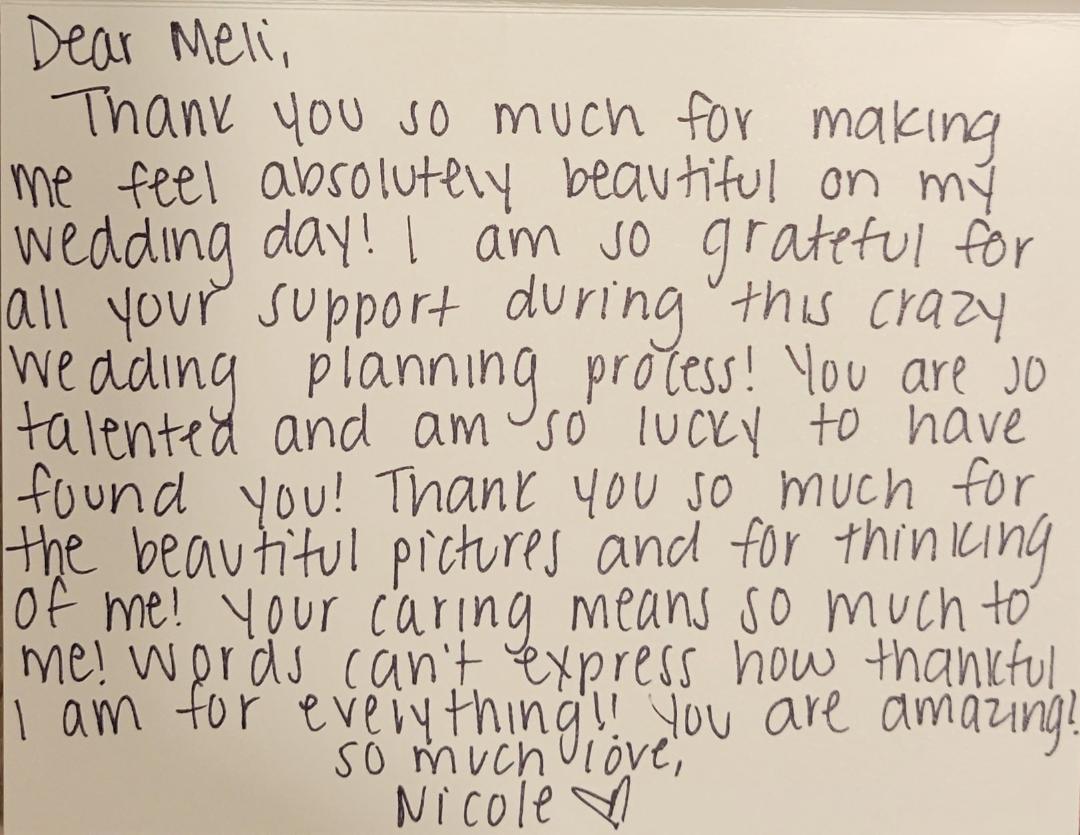 Dear Meli,
Thank you so much for making
me feel absolutely beautiful on my
wedding day! I am so grateful for
all your support during this crazy
wedding planning process! You are so
talented and am so lucky to have
found you! Thank you so much for
the beautiful pictures and for thinking
of me! Your caring means so much to
me! Words can't express how thankful
I am for everything!! You are amazing!
so much love,
Nicole ♡